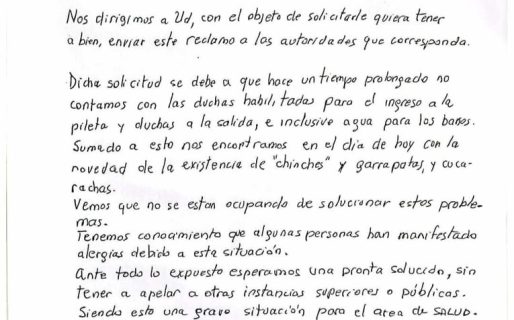 Nos dirigimos a Ud, con el objeto de solicitarle quiera tener
a bien, enviar este reclamo a las autoridades que corresponda.
Dicha solicitud se debe a que hace un tiempo prolongado no
contamos con las duchas habilitadas para el ingreso a la
pileta y duchas a la salida, e inclusive agua para los baños.
Sumado a esto nos encontramos en el día de hoy con la
novedad de la existencia de "chinches" y garrapatas, y cuca-
rachas.
Vemos que no se estan ocupando de solucionar estos proble-
mas.
Tenemos conocimiento que algunas personas han manifestado
alergias debido a esta situación.
Ante todo lo expuesto esperamos una pronta solución, sin
tener a apelar a otras instancias superiores o públicas.
Siendo esto una grave situación para el area de SALUD.